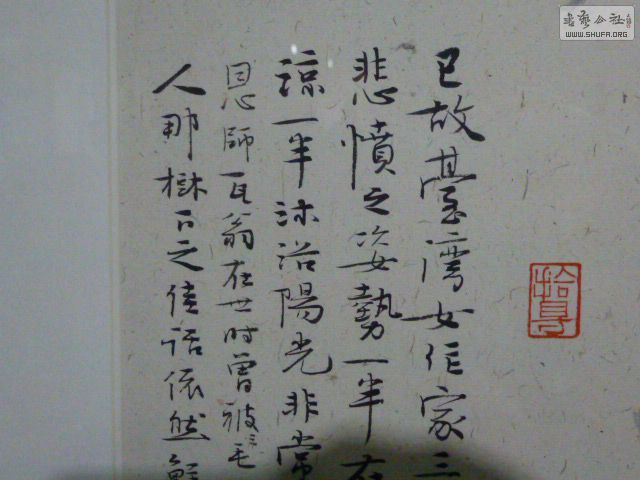 已故臺灣女作家三
悲憤之姿勢一半在
涼一半沐浴陽光非常
恩師瓦翁在世时曾被毛
人那樹下之佳话依然鲜
拾得
書藝公社
WWW.SHUFA.ORG